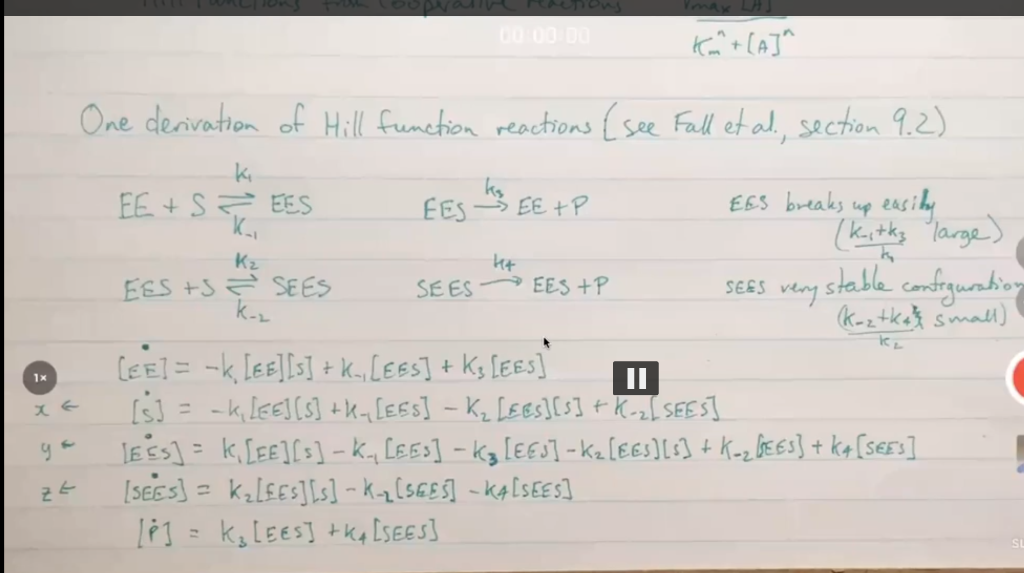 Hill functions from cooperative reactions Vmax [A]
Km^n + [A]^n
00:00:00
One derivation of Hill function reactions (see Fall et al., section 9.2)
EE + S ⇌ EES k₁ k₋₁ EES →k₃ EE + P EES breaks up easily
(k₋₁+k₃ / k₁ large)
EES + S ⇌ SEES k₂ k₋₂ SEES →k₄ EES + P SEES very stable configuration
(k₋₂+k₄ / k₂ small)
[ĖE] = -k₁[EE][S] + k₋₁[EES] + k₃[EES]
1×
x ← [Ṡ] = -k₁[EE][S] + k₋₁[EES] - k₂[EES][S] + k₋₂[SEES]
y ← [EĖS] = k₁[EE][S] - k₋₁[EES] - k₃[EES] - k₂[EES][S] + k₋₂[SEES] + k₄[SEES]
z ← [SEĖS] = k₂[EES][S] - k₋₂[SEES] - k₄[SEES]
[Ṗ] = k₃[EES] + k₄[SEES]